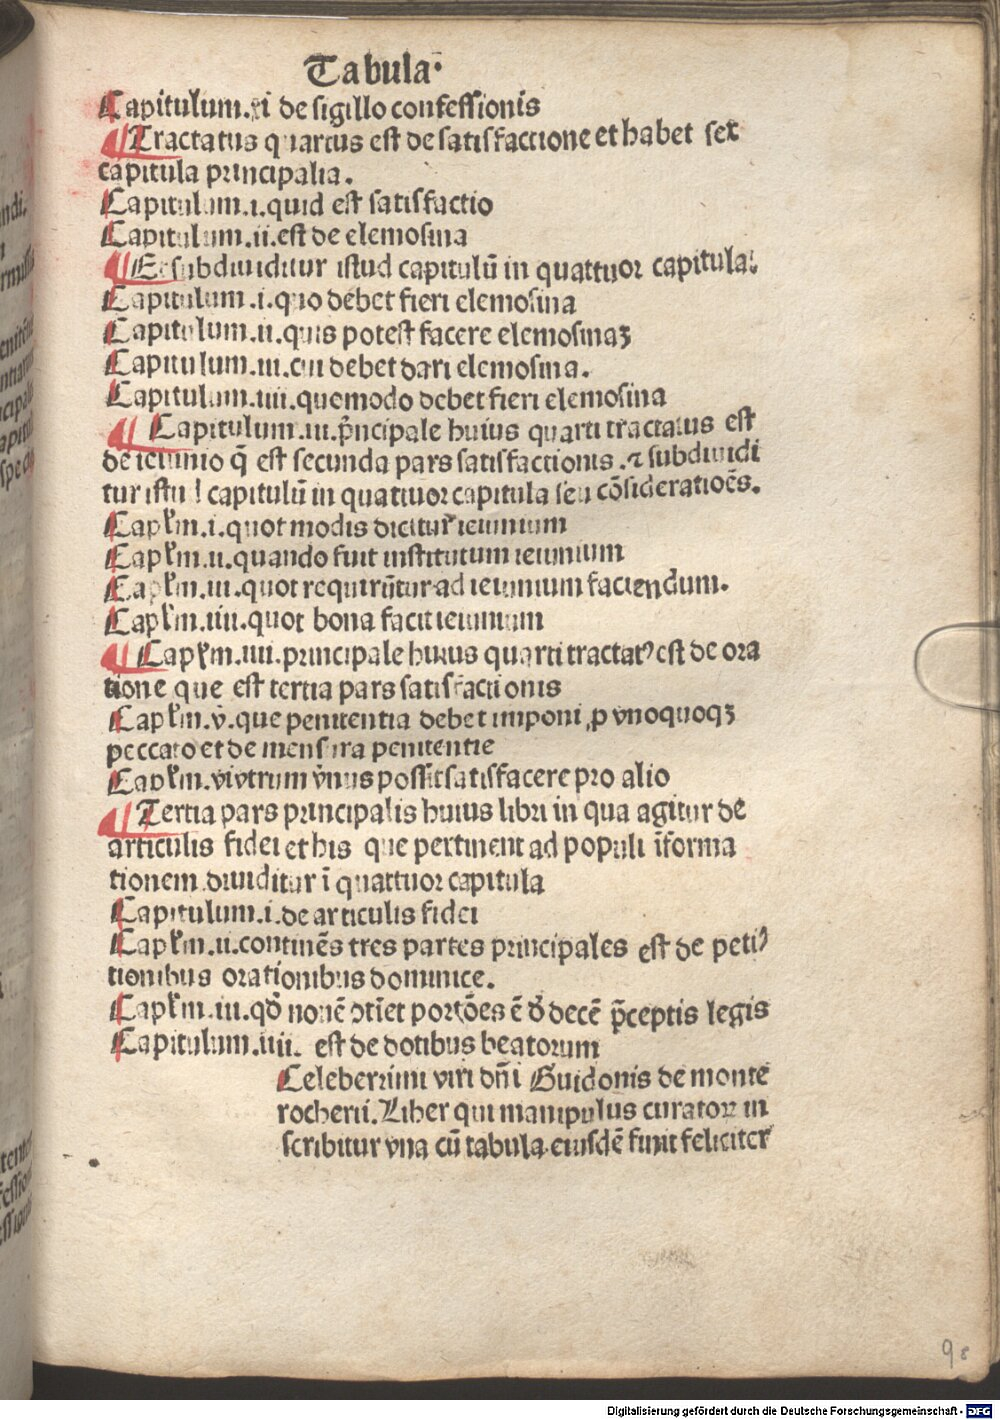 Tabula.
Capitulum.xi de sigillo confessionis
¶Tractatus quartus est de satisfactione et habet sex
capitula principalia.
Capitulum.i.quid est satisfactio
Capitulum.ii.est de elemosina
¶Et subdiuiditur istud capitulū in quattuor capitula.
Capitulum.i.quo debet fieri elemosina
Capitulum.ii.quis potest facere elemosinaꝫ
Capitulum.iii.cui debet dari elemosina.
Capitulum.iiii.quomodo debet fieri elemosina
¶Capitulum.iii.p̄ncipale huius quarti tractatus est
de ieiunio q̄ est secunda pars satisfactionis.⁊ subdiuidi
tur istud capitulū in quattuor capitula seu cōsideratioēs.
Capl'm.i.quot modis dicitur ieiunium
Capl'm.ii.quando fuit institutum ieiunium
Capl'm.iii.quot requirūtur ad ieiunium faciendum.
Capl'm.iiii.quot bona facit ieiunium
¶Capl'm.iiii.principale huius quarti tractatꝰ est de ora
tione que est tertia pars satisfactionis
Capl'm.v.que penitentia debet imponi ꝓ vnoquoqꝫ
peccato et de mensura penitentie
Capl'm.vi vtrum vnus possit satisfacere pro alio
¶Tertia pars principalis huius libri in qua agitur de
articulis fidei et his que pertinent ad populi īforma
tionem diuiditur ī quattuor capitula
Capitulum.i.de articulis fidei
Capl'm.ii.continēs tres partes principales est de peti
tionibus orationibus dominice.
Capl'm.iii.qđ nouē ↄtīet portōes ē đ decē p̄ceptis legis
Capitulum.iiii. est de dotibus beatorum
Celeberrimi viri dn̄i Guidonis de monte
rocherii.Liber qui manipulus curatoꝝ in
scribitur vna cū tabula eiusdē finit feliciter
98
Digitalisierung gefördert durch die Deutsche Forschungsgemeinschaft - DFG